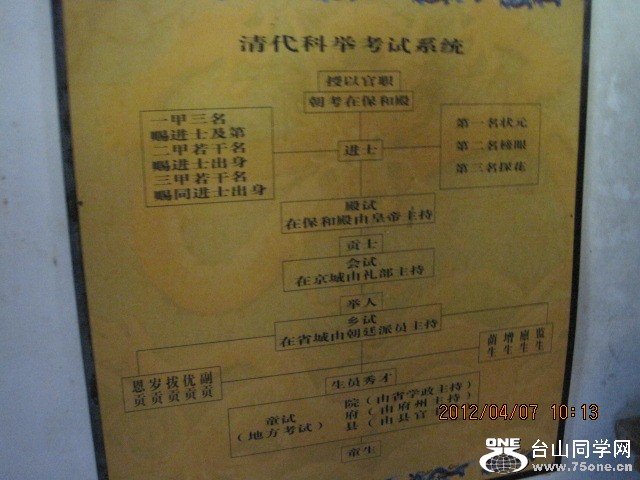 清代科举考试系统
授以官职
朝考在保和殿
一甲三名
赐进士及第
二甲若干名
赐进士出身
三甲若干名
赐同进士出身
进士
第一名状元
第二名榜眼
第三名探花
殿试
在保和殿由皇帝主持
贡士
会试
在京城由礼部主持
举人
乡试
在省城由朝廷派员主持
恩贡
岁贡
拔贡
优贡
副贡
荫生
增生
廪生
监生
生员秀才
童试
(地方考试)
院(由省学政主持)
府(由府州主持)
县(由县官主持)
童生
2012/04/07 10:13
ONE
台山同学网
www.75one.cn